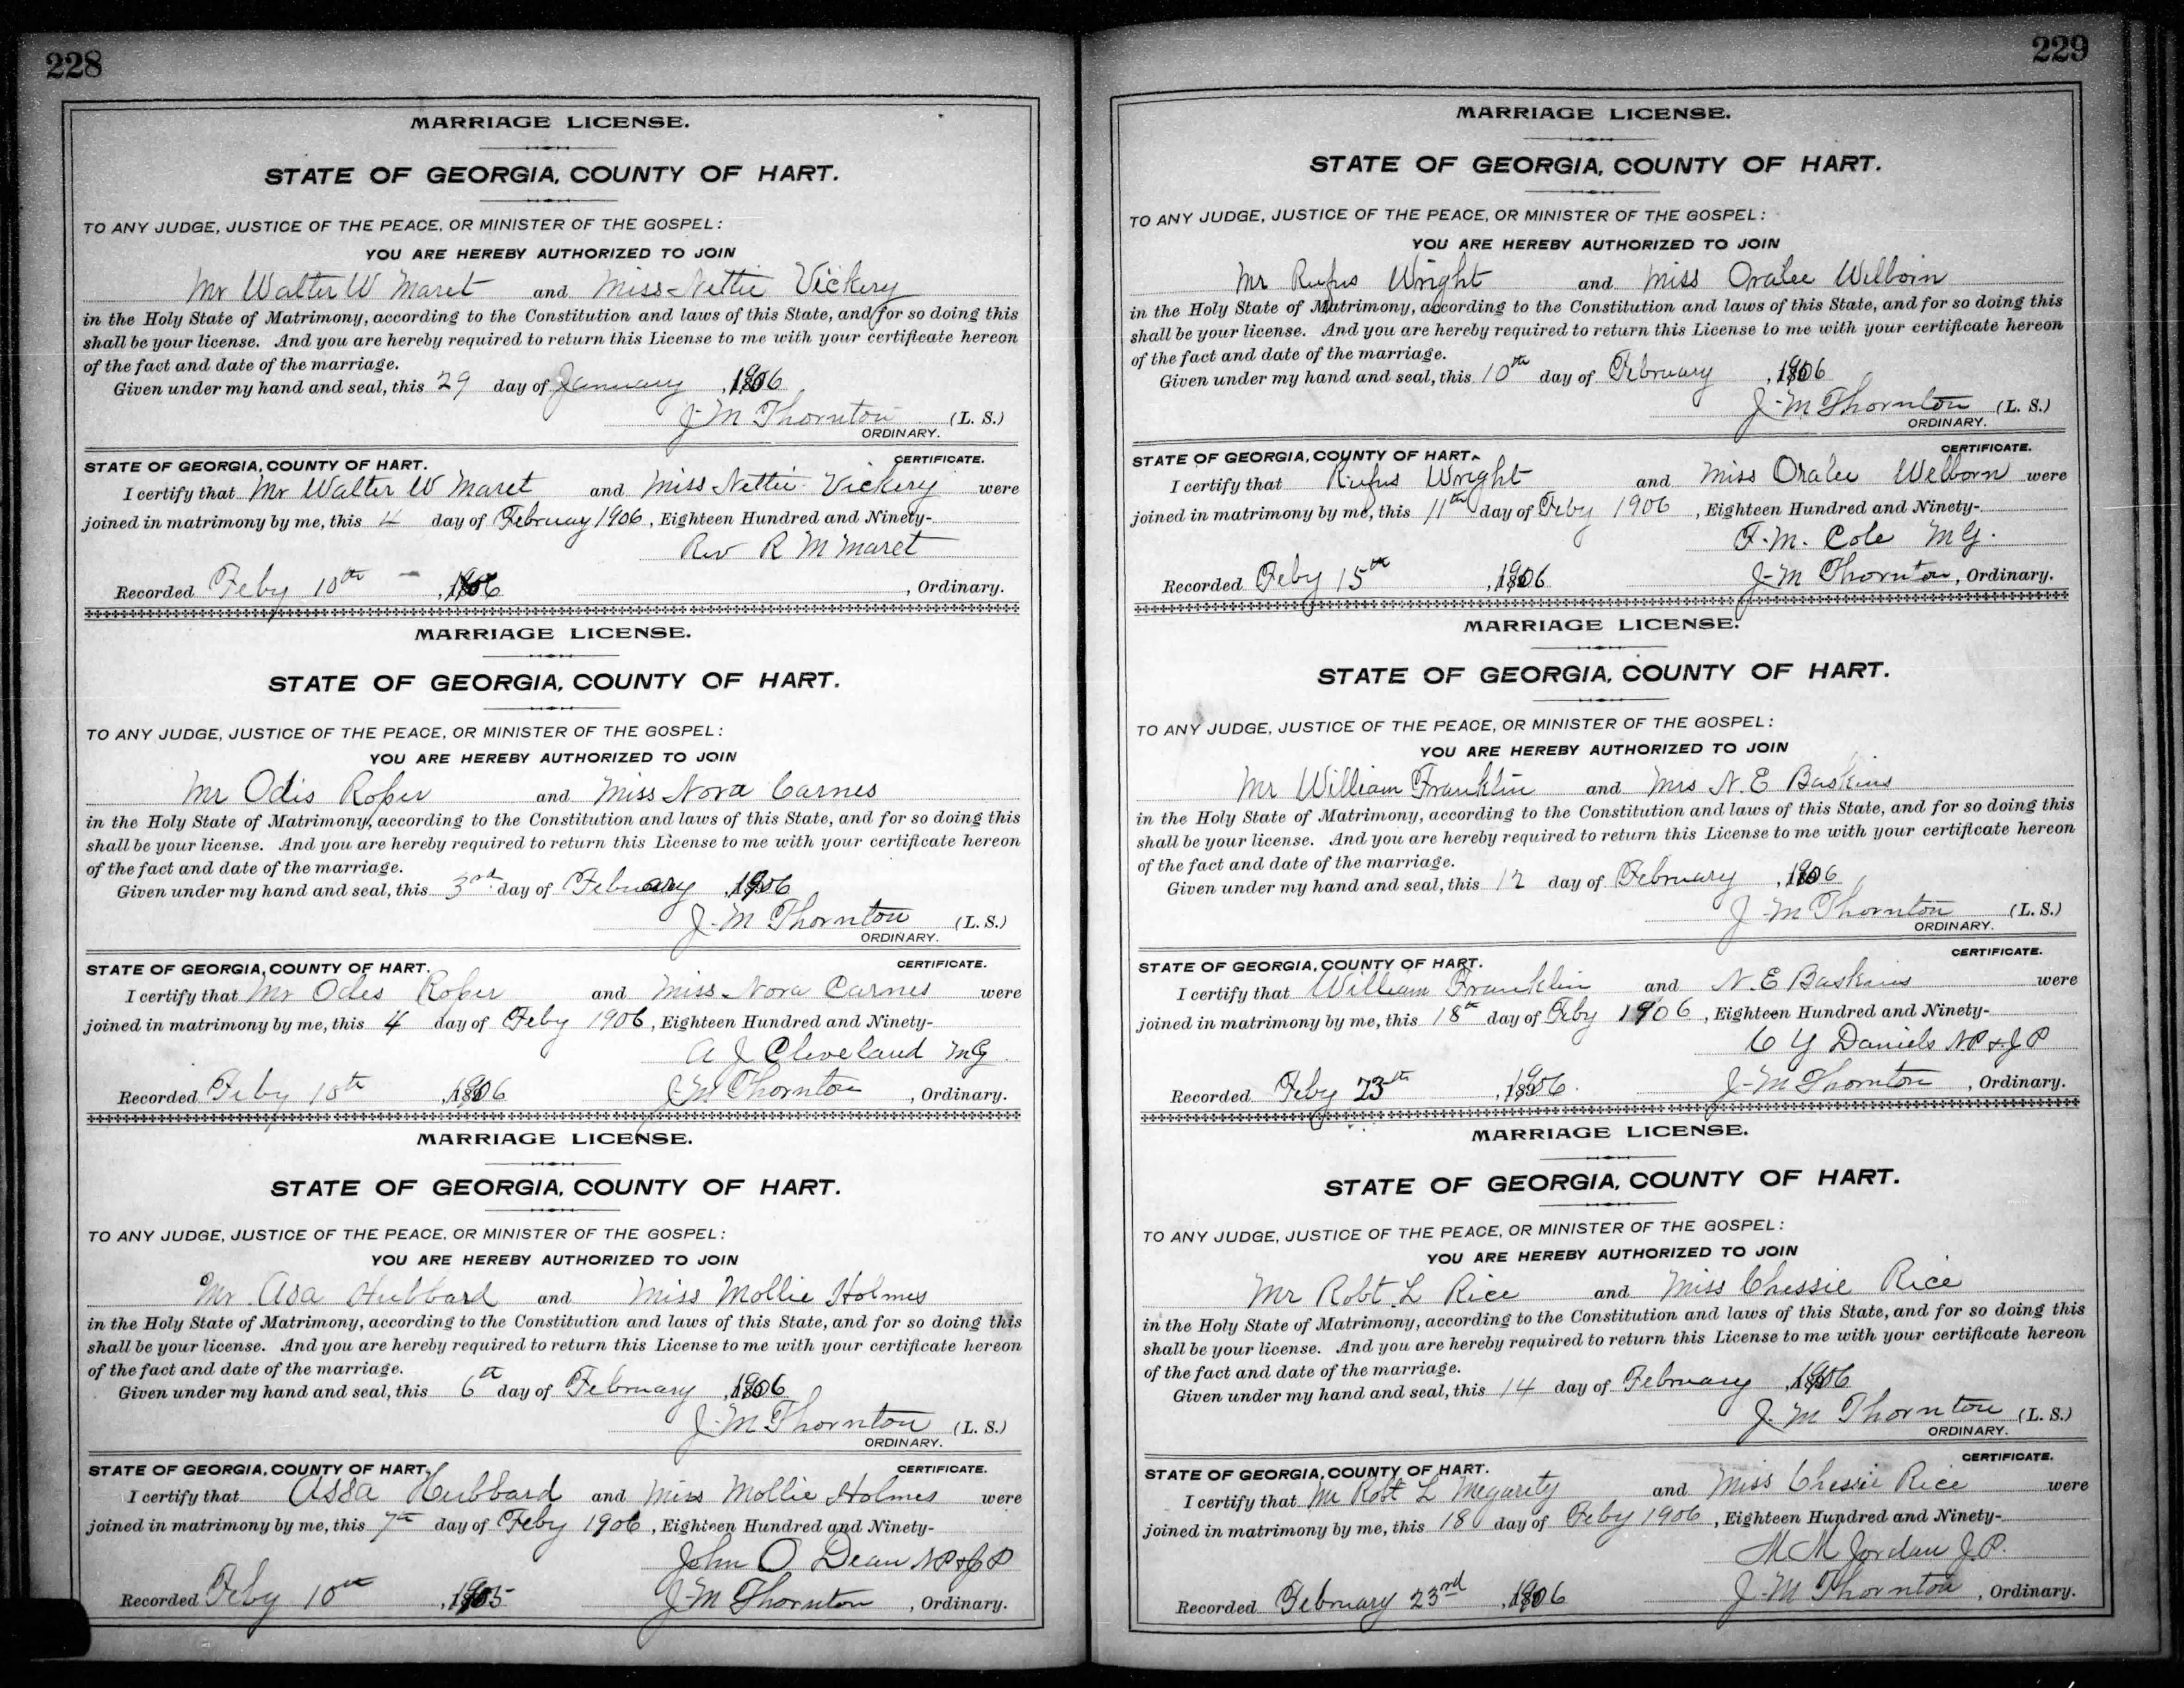 228
MARRIAGE LICENSE.
STATE OF GEORGIA, COUNTY OF HART.
TO ANY JUDGE, JUSTICE OF THE PEACE, OR MINISTER OF THE GOSPEL:
YOU ARE HEREBY AUTHORIZED TO JOIN
Mr Walter W Maret and Miss Nettie Vickery
in the Holy State of Matrimony, according to the Constitution and laws of this State, and for so doing this
shall be your license. And you are hereby required to return this License to me with your certificate hereon
of the fact and date of the marriage.
Given under my hand and seal, this 29 day of January, 1906
J-M Thornton (L. S.)
ORDINARY.
STATE OF GEORGIA, COUNTY OF HART. CERTIFICATE.
I certify that Mr Walter W Maret and Miss Nettie Vickery were
joined in matrimony by me, this 4 day of Februay 1906, Eighteen Hundred and Ninety-
Rev R M Maret
Recorded Feby 10th, 1906, Ordinary.
MARRIAGE LICENSE.
STATE OF GEORGIA, COUNTY OF HART.
TO ANY JUDGE, JUSTICE OF THE PEACE, OR MINISTER OF THE GOSPEL:
YOU ARE HEREBY AUTHORIZED TO JOIN
Mr Odis Roper and Miss Nora Carnes
in the Holy State of Matrimony, according to the Constitution and laws of this State, and for so doing this
shall be your license. And you are hereby required to return this License to me with your certificate hereon
of the fact and date of the marriage.
Given under my hand and seal, this 3rd day of February, 1906
J-M Thornton (L. S.)
ORDINARY.
STATE OF GEORGIA, COUNTY OF HART. CERTIFICATE.
I certify that Mr Odes Roper and Miss Nora Carnes were
joined in matrimony by me, this 4 day of Feby 1906, Eighteen Hundred and Ninety-
A J Cleveland MG.
Recorded Feby 10th, 1906 J-M Thornton, Ordinary.
MARRIAGE LICENSE.
STATE OF GEORGIA, COUNTY OF HART.
TO ANY JUDGE, JUSTICE OF THE PEACE, OR MINISTER OF THE GOSPEL:
YOU ARE HEREBY AUTHORIZED TO JOIN
Mr Asa Hubbard and Miss Mollie Holmes
in the Holy State of Matrimony, according to the Constitution and laws of this State, and for so doing this
shall be your license. And you are hereby required to return this License to me with your certificate hereon
of the fact and date of the marriage.
Given under my hand and seal, this 6th day of February, 1906
J-M Thornton (L. S.)
ORDINARY.
STATE OF GEORGIA, COUNTY OF HART. CERTIFICATE.
I certify that Assa Hubbard and Miss Mollie Holmes were
joined in matrimony by me, this 7th day of Feby 1906, Eighteen Hundred and Ninety-
John O Dean NP & JP
Recorded Feby 10th, 1905 J-M Thornton, Ordinary.
229
MARRIAGE LICENSE.
STATE OF GEORGIA, COUNTY OF HART.
TO ANY JUDGE, JUSTICE OF THE PEACE, OR MINISTER OF THE GOSPEL:
YOU ARE HEREBY AUTHORIZED TO JOIN
Mr Rufus Wright and Miss Oralee Welborn
in the Holy State of Matrimony, according to the Constitution and laws of this State, and for so doing this
shall be your license. And you are hereby required to return this License to me with your certificate hereon
of the fact and date of the marriage.
Given under my hand and seal, this 10th day of February, 1906
J-M Thornton (L. S.)
ORDINARY.
STATE OF GEORGIA, COUNTY OF HART. CERTIFICATE.
I certify that Rufus Wright and Miss Oralee Welborn were
joined in matrimony by me, this 11th day of Feby 1906, Eighteen Hundred and Ninety-
F. M. Cole MG.
Recorded Feby 15th, 1906 J-M Thornton, Ordinary.
MARRIAGE LICENSE.
STATE OF GEORGIA, COUNTY OF HART.
TO ANY JUDGE, JUSTICE OF THE PEACE, OR MINISTER OF THE GOSPEL:
YOU ARE HEREBY AUTHORIZED TO JOIN
Mr William Franklin and Mrs N. E Baskins
in the Holy State of Matrimony, according to the Constitution and laws of this State, and for so doing this
shall be your license. And you are hereby required to return this License to me with your certificate hereon
of the fact and date of the marriage.
Given under my hand and seal, this 12 day of February, 1906
J-M Thornton (L. S.)
ORDINARY.
STATE OF GEORGIA, COUNTY OF HART. CERTIFICATE.
I certify that William Franklin and N. E Baskins were
joined in matrimony by me, this 18th day of Feby 1906, Eighteen Hundred and Ninety-
C Y Daniels NP & JP
Recorded Feby 23th, 1906. J-M Thornton, Ordinary.
MARRIAGE LICENSE.
STATE OF GEORGIA, COUNTY OF HART.
TO ANY JUDGE, JUSTICE OF THE PEACE, OR MINISTER OF THE GOSPEL:
YOU ARE HEREBY AUTHORIZED TO JOIN
Mr Robt. L Rice and Miss Chessie Rice
in the Holy State of Matrimony, according to the Constitution and laws of this State, and for so doing this
shall be your license. And you are hereby required to return this License to me with your certificate hereon
of the fact and date of the marriage.
Given under my hand and seal, this 14 day of February, 1906
J. M Thornton (L. S.)
ORDINARY.
STATE OF GEORGIA, COUNTY OF HART. CERTIFICATE.
I certify that Mr Robt L Megarity and Miss Chessie Rice were
joined in matrimony by me, this 18 day of Feby 1906, Eighteen Hundred and Ninety-
M M Jordan J.P.
Recorded February 23rd, 1906 J-M Thornton, Ordinary.